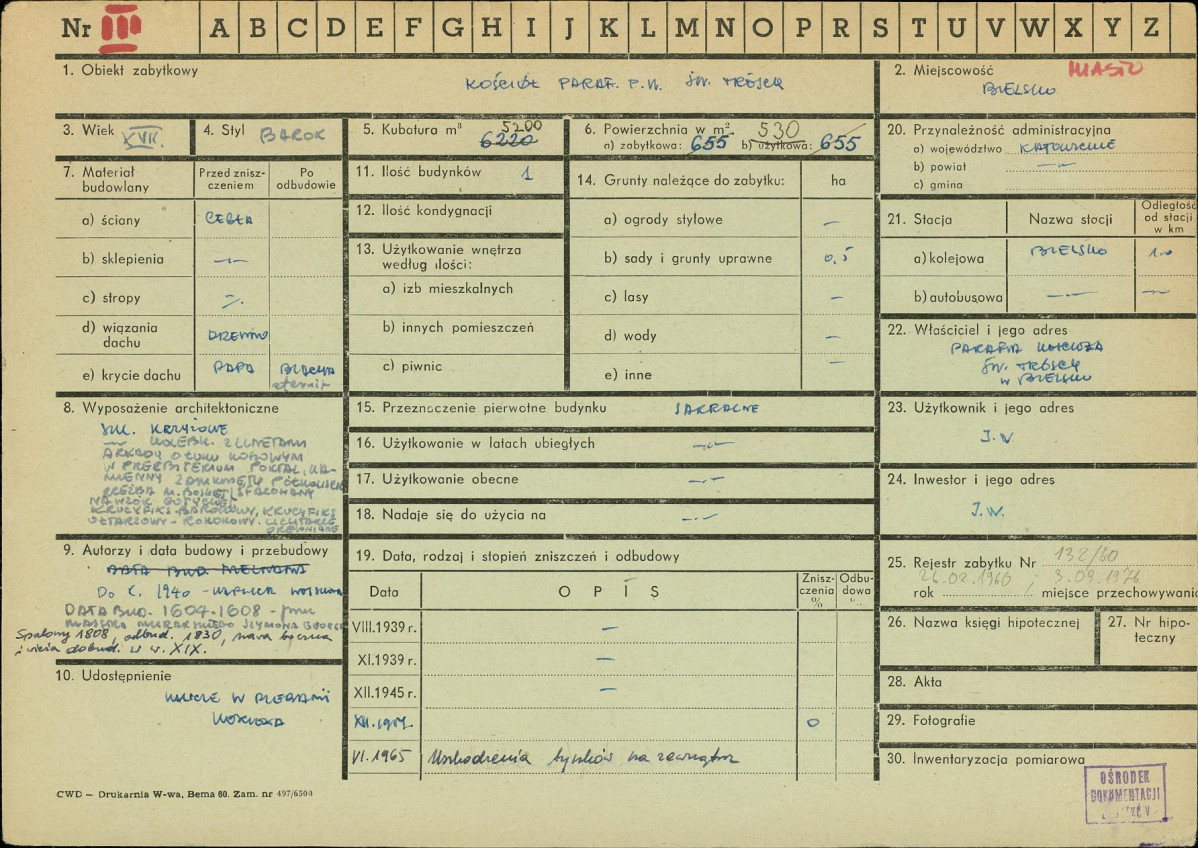 Nr III A B C D E F G H I J K L M N O P R S T U V W X Y Z
1. Obiekt zabytkowy
KOŚCIÓŁ PARAF. P.W. ŚW. TRÓJCY
2. Miejscowość MIASTO
BIELSKO
3. Wiek XVII.
4. Styl BAROK
5. Kubatura m³ 5200
6220
6. Powierzchnia w m² 530
a) zabytkowa: 655 b) użytkowa: 655
20. Przynależność administracyjna
a) województwo KATOWICKIE
b) powiat —"—
c) gmina
7. Materiał budowlany
Przed zniszczeniem
Po odbudowie
a) ściany CEGŁA
b) sklepienia —"—
c) stropy
d) wiązania dachu DREWNO
e) krycie dachu PAPA BLACHA
eternit
11. Ilość budynków 1
12. Ilość kondygnacji
13. Użytkowanie wnętrza
według ilości:
a) izb mieszkalnych
b) innych pomieszczeń
c) piwnic
14. Grunty należące do zabytku: ha
a) ogrody stylowe —
b) sady i grunty uprawne 0,5
c) lasy —
d) wody —
e) inne —
21. Stacja
Nazwa stacji
Odległość
od stacji
w km
a) kolejowa BIELSKO 1.0
b) autobusowa —"— —"—
22. Właściciel i jego adres
PARAFIA KOŚCIOŁA
ŚW. TRÓJCY
W BIELSKU
8. Wyposażenie architektoniczne
SKL. KRZYŻOWE
—"— KOLEBK. Z LUNETAMI
ARKADY O ŁUKU KOSZOWYM
W PREZBITERIUM PORTAL, KA-
MIENNY ZAMKNIĘTY PÓŁKOLIŚCIE
RZEŹBA M. BOSKIEJ STYLIZOWANY
NA WZÓR GOTYCKIEJ
KRUCYFIKS BAROKOWY, KRUCYFIKS
OŁTARZOWY - ROKOKOWY. LICHTARZE
DREWNIANE
15. Przeznaczenie pierwotne budynku SAKRALNE
16. Użytkowanie w latach ubiegłych —"—
17. Użytkowanie obecne —"—
18. Nadaje się do użycia na —"—
23. Użytkownik i jego adres
J.W.
24. Inwestor i jego adres
J.W.
9. Autorzy i data budowy i przebudowy
DATA BUD. NIEZNANA
DO R. 1940 - KAPLICA WOJSKOWA
DATA BUD. 1604-1608 - przez
MURARSKIEGO SZYMONA
Spalony 1808, odbud. 1830, nawa boczna
i wieża dobud. w w. XIX.
10. Udostępnienie
KLUCZE W PLEBANII
KOŚCIOŁA
19. Data, rodzaj i stopień zniszczeń i odbudowy
Data
O P I S
Zniszczenia %
Odbudowa %
VIII.1939 r. —
XI.1939 r. —
XII.1945 r. —
0
VI.1965 Uszkodzenia tynków na zewnątrz
25. Rejestr zabytku Nr 132/60
26.02.1960; 3.09.1976
rok miejsce przechowywania
26. Nazwa księgi hipotecznej
27. Nr hipoteczny
28. Akta
29. Fotografie
30. Inwentaryzacja pomiarowa
OŚRODEK
DOKUMENTACJI
ZABYTKÓW
CWD — Drukarnia W-wa, Bema 60. Zam. nr 497/6500